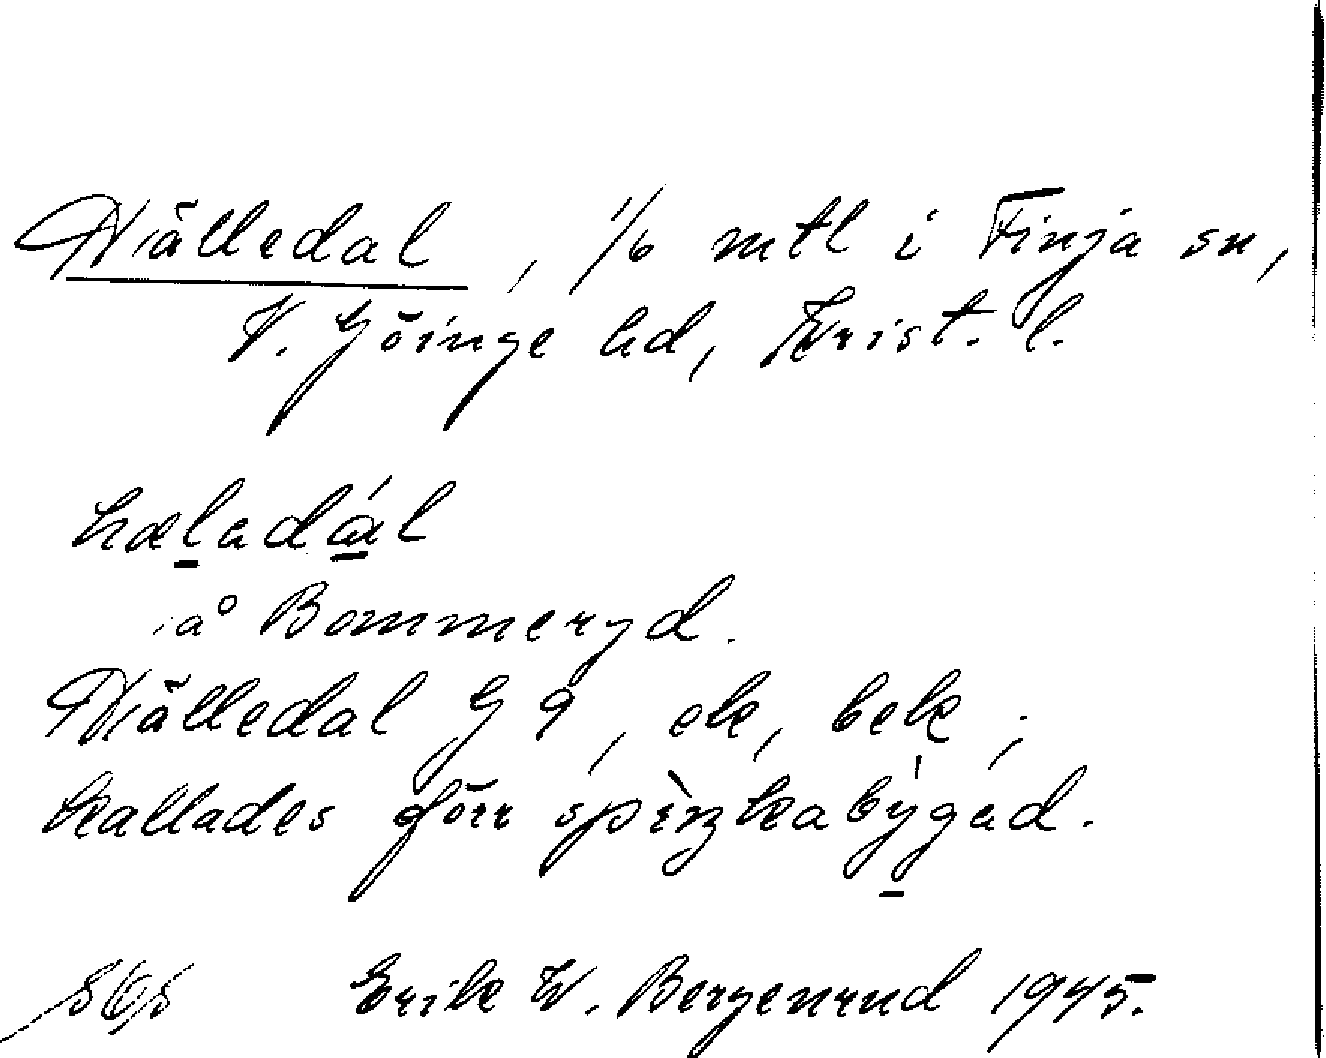 Hälledal, 1/6 mtl i Finja sn,
V. Göinge hd, Krist. l.
hæladál
å Bommeryd.
Hälledal G 9, ek, bek;
kallades förr spìŋkabýgəd.
Erik W. Bergenrud 1945.